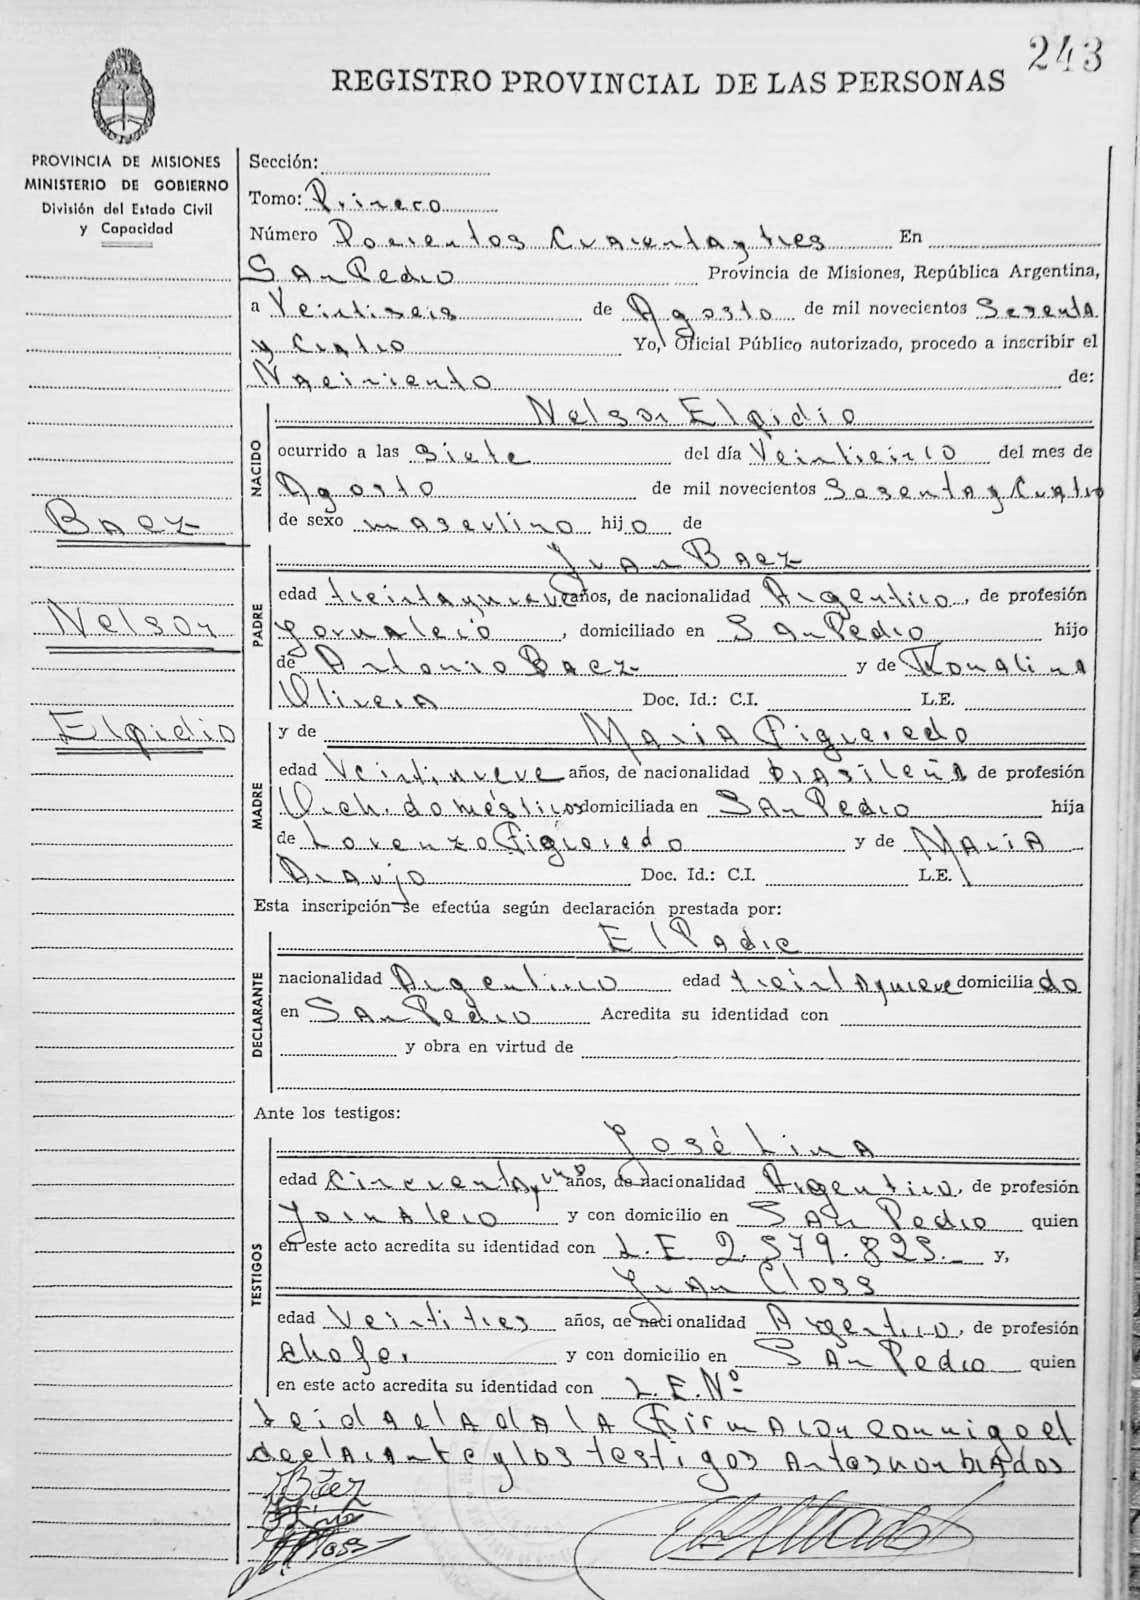 243
REGISTRO PROVINCIAL DE LAS PERSONAS
PROVINCIA DE MISIONES
MINISTERIO DE GOBIERNO
División del Estado Civil
y Capacidad
Baez
Nelson
Elpidio
Sección:
Tomo: Primero
Número Docientos Cuarenta y tres En
San Pedro Provincia de Misiones, República Argentina,
a Veintiseis de Agosto de mil novecientos Sesenta
y Cuatro Yo, Oficial Público autorizado, procedo a inscribir el
Nacimiento de:
NACIDO
Nelson Elpidio
ocurrido a las siete del día Veinticinco del mes de
Agosto de mil novecientos Sesenta y Cuatro
de sexo masculino hijo de
PADRE
Juan Baez
edad treinta y nueve años, de nacionalidad Argentino, de profesión
Jornalero, domiciliado en San Pedro hijo
de Antonio Baez y de Romalina
Olivera Doc. Id.: C.I. L.E.
MADRE
y de Maria Figueredo
edad Veintinueve años, de nacionalidad brasileña de profesión
Queh. domésticos domiciliada en San Pedro hija
de Lorenzo Figueredo y de Maria
Araujo Doc. Id.: C.I. L.E.
Esta inscripción se efectúa según declaración prestada por:
DECLARANTE
El Padre
nacionalidad Argentino edad treinta y nueve domiciliado
en San Pedro Acredita su identidad con
y obra en virtud de
Ante los testigos:
TESTIGOS
José Lima
edad Cincuenta y uno años, de nacionalidad Argentino, de profesión
Jornalero y con domicilio en San Pedro quien
en este acto acredita su identidad con L.E. 2.579.825. y,
Juan Closs
edad Veintitres años, de nacionalidad Argentino, de profesión
chofer y con domicilio en San Pedro quien
en este acto acredita su identidad con L.E.Nº
Leida el acta la Firmacon conmigo el
declarante y los testigos antes nombrados
J Báez